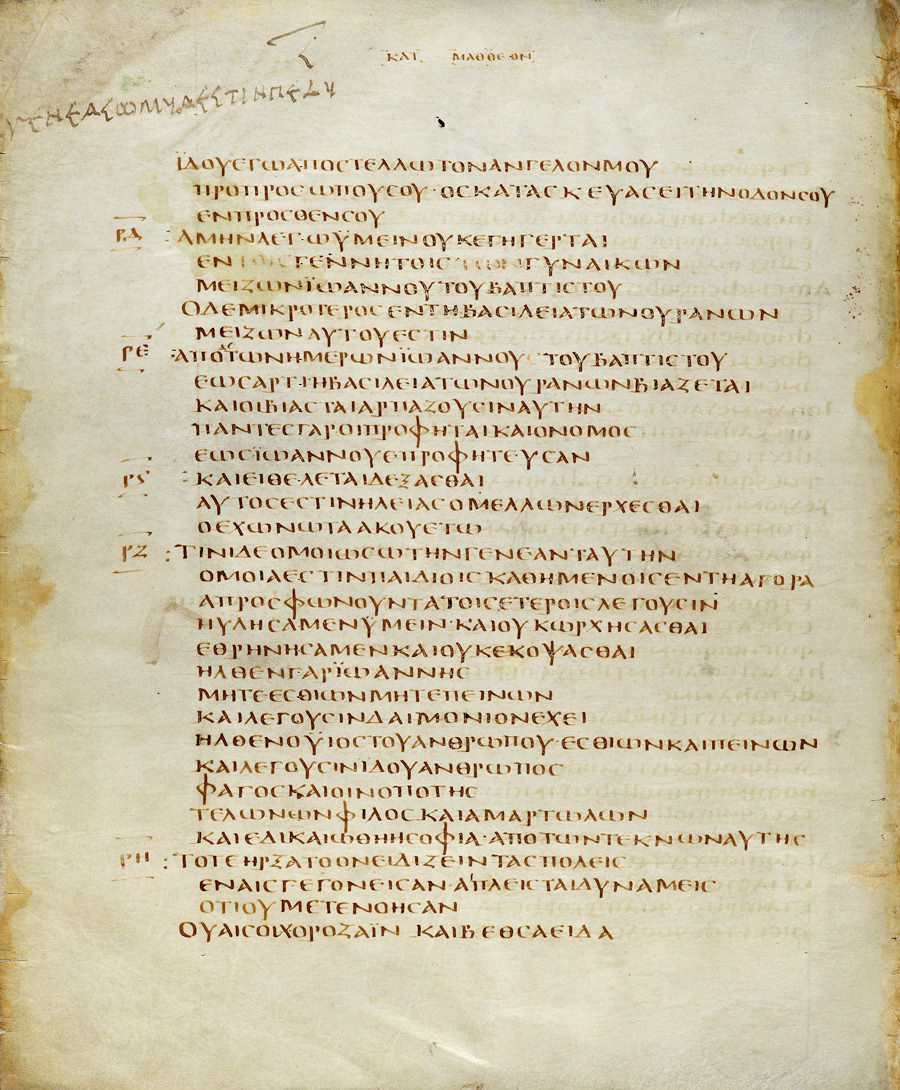 ΚΑΤ ΜΑΘΘΕΟΝ
ΪΔΟΥΕΓΩΑΠΟΣΤΕΛΛΩΤΟΝΑΝΓΕΛΟΝΜΟΥ
ΠΡΟΠΡΟΣΩΠΟΥΣΟΥ·ΟΣΚΑΤΑΣΚΕΥΑΣΕΙΤΗΝΟΔΟΝΣΟΥ
ΕΝΠΡΟΣΘΕΝΣΟΥ
ΡΔ ΑΜΗΝΛΕΓΩΫΜΕΙΝΟΥΚΕΓΗΓΕΡΤΑΙ
ΕΝ ΓΕΝΝΗΤΟΙΣ ΓΥΝΑΙΚΩΝ
ΜΕΙΖΩΝΪΩΑΝΝΟΥΤΟΥΒΑΠΤΙΣΤΟΥ
ΟΔΕΜΙΚΡΟΤΕΡΟΣΕΝΤΗΒΑΣΙΛΕΙΑΤΩΝΟΥΡΑΝΩΝ
ΜΕΙΖΩΝΑΥΤΟΥΕΣΤΙΝ
ΡΕ ΑΠΟΤΩΝΗΜΕΡΩΝΪΩΑΝΝΟΥ ΤΟΥΒΑΠΤΙΣΤΟΥ
ΕΩΣΑΡΤΙΗΒΑΣΙΛΕΙΑΤΩΝΟΥΡΑΝΩΝΒΙΑΖΕΤΑΙ
ΚΑΙΟΙΒΙΑΣΤΑΙΑΡΠΑΖΟΥΣΙΝΑΥΤΗΝ
ΠΑΝΤΕΣΓΑΡΟΙΠΡΟΦΗΤΑΙΚΑΙΟΝΟΜΟΣ
ΕΩΣΪΩΑΝΝΟΥΕΠΡΟΦΗΤΕΥΣΑΝ
ΡϚ ΚΑΙΕΙΘΕΛΕΤΑΙΔΕΞΑΣΘΑΙ
ΑΥΤΟΣΕΣΤΙΝΗΛΕΙΑΣΟΜΕΛΛΩΝΕΡΧΕΣΘΑΙ
ΟΕΧΩΝΩΤΑΑΚΟΥΕΤΩ
ΡΖ :ΤΙΝΙΔΕΟΜΟΙΩΣΩΤΗΝΓΕΝΕΑΝΤΑΥΤΗΝ
ΟΜΟΙΑΕΣΤΙΝΠΑΙΔΙΟΙΣΚΑΘΗΜΕΝΟΙΣΕΝΤΗΑΓΟΡΑ
ΑΠΡΟΣΦΩΝΟΥΝΤΑΤΟΙΣΕΤΕΡΟΙΣΛΕΓΟΥΣΙΝ
ΗΥΛΗΣΑΜΕΝΫΜΕΙΝ·ΚΑΙΟΥΚΩΡΧΗΣΑΣΘΑΙ
ΕΘΡΗΝΗΣΑΜΕΝΚΑΙΟΥΚΕΚΟΨΑΣΘΑΙ
ΗΛΘΕΝΓΑΡΪΩΑΝΝΗΣ
ΜΗΤΕΕΣΘΙΩΝΜΗΤΕΠΕΙΝΩΝ
ΚΑΙΛΕΓΟΥΣΙΝΔΑΙΜΟΝΙΟΝΕΧΕΙ
ΗΛΘΕΝΟΫΙΟΣΤΟΥΑΝΘΡΩΠΟΥ·ΕΣΘΙΩΝΚΑΙΠΕΙΝΩΝ
ΚΑΙΛΕΓΟΥΣΙΝΙΔΟΥΑΝΘΡΩΠΟΣ
ΦΑΓΟΣΚΑΙΟΙΝΟΠΟΤΗΣ
ΤΕΛΩΝΩΝΦΙΛΟΣΚΑΙΑΜΑΡΤΩΛΩΝ
ΚΑΙΕΔΙΚΑΙΩΘΗΗΣΟΦΙΑ·ΑΠΟΤΩΝΤΕΚΝΩΝΑΥΤΗΣ
ΡΗ :ΤΟΤΕΗΡΞΑΤΟΟΝΕΙΔΙΖΕΙΝΤΑΣΠΟΛΕΙΣ
ΕΝΑΙΣΓΕΓΟΝΕΙΣΑΝ·ΑΠΛΕΙΣΤΑΙΔΥΝΑΜΕΙΣ
ΟΤΙΟΥΜΕΤΕΝΟΗΣΑΝ
ΟΥΑΙΣΟΙΧΟΡΟΖΑΪΝ ΚΑΙΒΕΘΣΑΕΙΔΑ